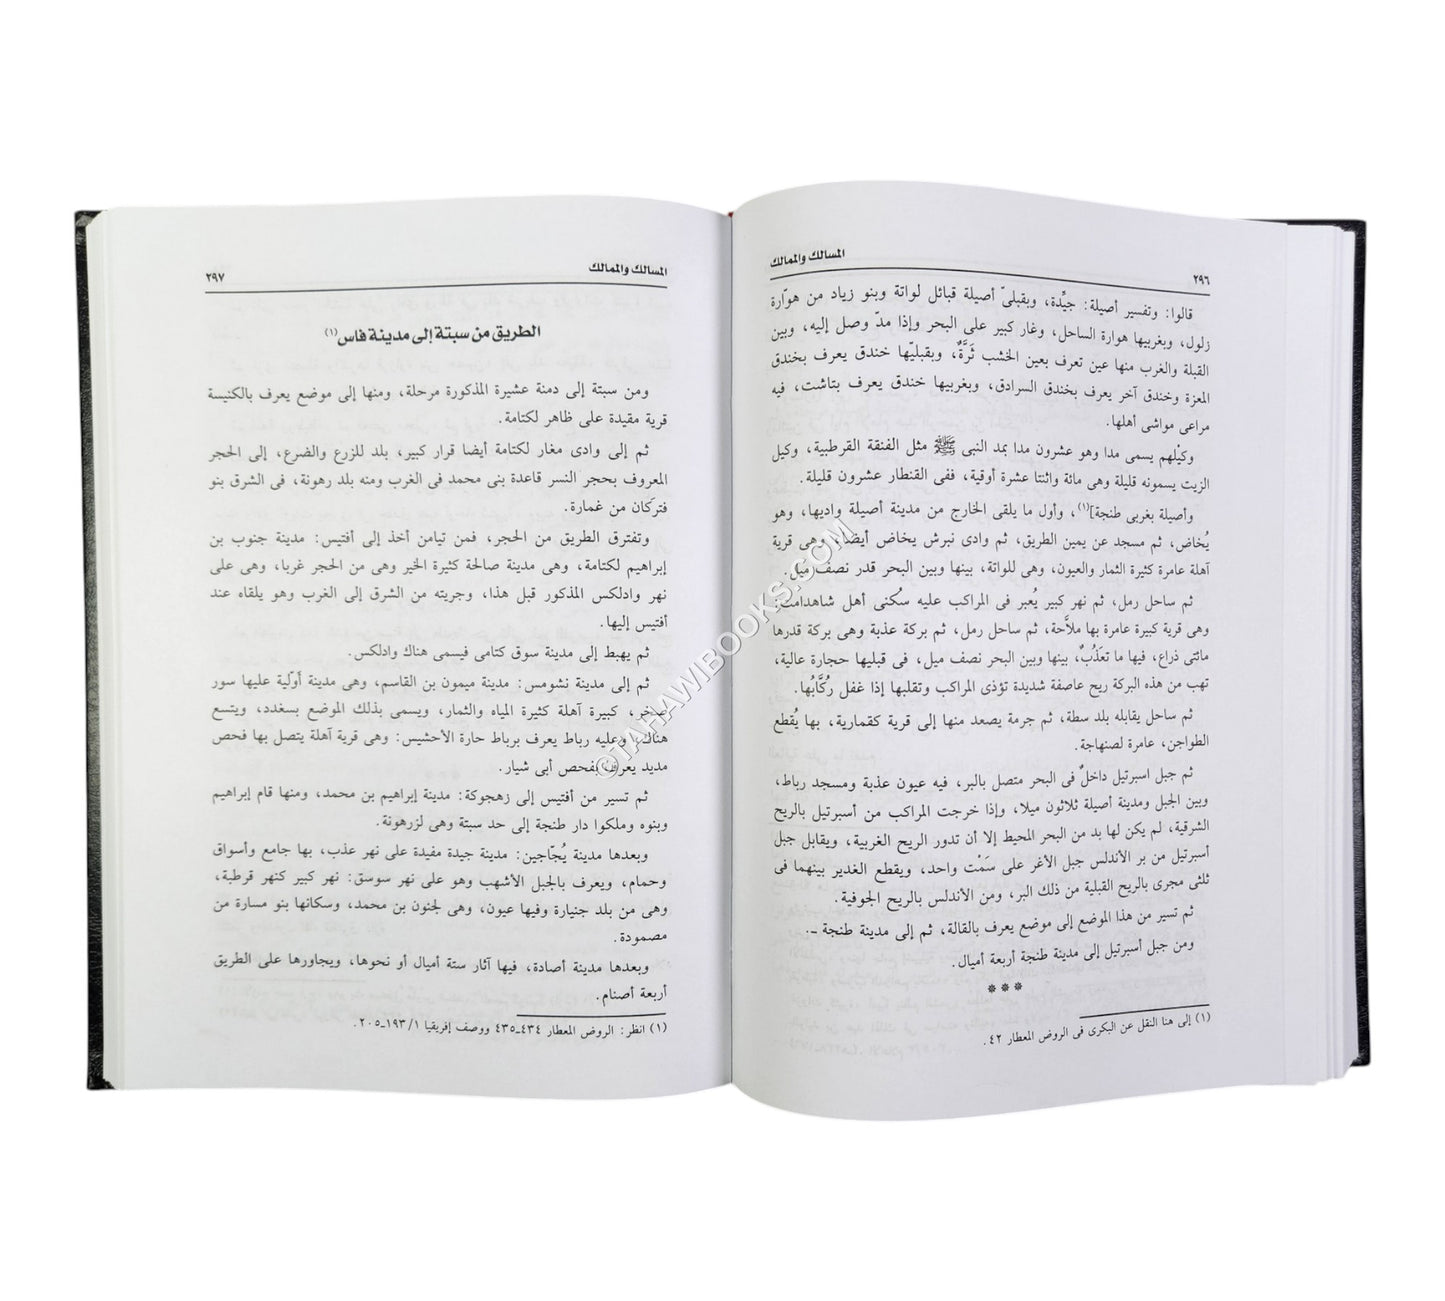 ٢٩٦
المسالك والممالك
قالوا: وتفسير أصيلة: جيِّدة، وبقبلىّ أصيلة قبائل لواتة وبنو زياد من هوّارة
زلول، وبغربيها هوارة الساحل، وغار كبير على البحر وإذا مدّ وصل إليه، وبين
القبلة والغرب منها عين تعرف بعين الخشب ثَرَّةٌ، وبقبليّها خندق يعرف بخندق
المعزة وخندق آخر يعرف بخندق السرادق، وبغربيها خندق يعرف بتاشت، فيه
مراعى مواشى أهلها.
وكيْلهم يسمى مدا وهو عشرون مدا بمد النبى ﷺ مثل الفنقة القرطبية، وكيل
الزيت يسمونه قليلة وهى مائة واثنتا عشرة أوقية، ففى القنطار عشرون قليلة.
وأصيلة بغربى طنجة](١)، وأول ما يلقى الخارج من مدينة أصيلة واديها، وهو
يُخاض، ثم مسجد عن يمين الطريق، ثم وادى نبرش يخاض أيضا، وهى قرية
آهلة عامرة كثيرة الثمار والعيون، وهى للواتة، بينها وبين البحر قدر نصف ميل.
ثم ساحل رمل، ثم نهر كبير يُعبر فى المراكب عليه سُكنى أهل شاهدامت:
وهى قرية كبيرة عامرة بها ملاَّحة، ثم ساحل رمل، ثم بركة عذبة وهى بركة قدرها
مائتى ذراع، فيها ما تعَذُبٌ، بينها وبين البحر نصف ميل، فى قبليها حجارة عالية،
تهب من هذه البركة ريح عاصفة شديدة تؤذى المراكب وتقلبها إذا غفل رُكَّابُها.
ثم ساحل يقابله بلد سطة، ثم جرمة يصعد منها إلى قرية كقمارية، بها يُقطع
الطواجن، عامرة لصنهاجة.
ثم جبل اسبرتيل داخلٌ فى البحر متصل بالبر، فيه عيون عذبة ومسجد رباط،
وبين الجبل ومدينة أصيلة ثلاثون ميلا، وإذا خرجت المراكب من أسبرتيل بالريح
الشرقية، لم يكن لها بد من البحر المحيط إلا أن تدور الريح الغربية، ويقابل جبل
أسبرتيل من بر الأندلس جبل الأغر على سَمْت واحد، ويقطع الغدير بينهما فى
ثلثى مجرى بالريح القبلية من ذلك البر، ومن الأندلس بالريح الجوفية.
ثم تسير من هذا الموضع إلى موضع يعرف بالقالة، ثم إلى مدينة طنجة ـ.
ومن جبل أسبرتيل إلى مدينة طنجة أربعة أميال.
***
(١) إلى هنا النقل عن البكرى فى الروض المعطار ٤٢.
المسالك والممالك
٢٩٧
الطريق من سبتة إلى مدينة فاس(١)
ومن سبتة إلى دمنة عشيرة المذكورة مرحلة، ومنها إلى موضع يعرف بالكنيسة
قرية مقيدة على ظاهر لكتامة.
ثم إلى وادى مغار لكتامة أيضا قرار كبير، بلد للزرع والضرع، إلى الحجر
المعروف بحجر النسر قاعدة بنى محمد فى الغرب ومنه بلد رهونة، فى الشرق بنو
فتركان من غمارة.
وتفترق الطريق من الحجر، فمن تيامن أخذ إلى أفتيس: مدينة جنوب بن
إبراهيم لكتامة، وهى مدينة صالحة كثيرة الخير وهى من الحجر غربا، وهى على
نهر وادلكس المذكور قبل هذا، وجريته من الشرق إلى الغرب وهو يلقاه عند
أفتيس إليها.
ثم يهبط إلى مدينة سوق كتامى فيسمى هناك وادلكس.
ثم إلى مدينة نشومس: مدينة ميمون بن القاسم، وهى مدينة أوّلية عليها سور
صخر، كبيرة آهلة كثيرة المياه والثمار، ويسمى بذلك الموضع بسغدد، ويتسع
هناك، وعليه رباط يعرف برباط حارة الأحشيس: وهى قرية آهلة يتصل بها فحص
مديد يعرف بفحص أبى شيار.
ثم تسير من أفتيس إلى زهجوكة: مدينة إبراهيم بن محمد، ومنها قام إبراهيم
وبنوه وملكوا دار طنجة إلى حد سبتة وهى لزرهونة.
وبعدها مدينة يُجّاجين: مدينة جيدة مفيدة على نهر عذب، بها جامع وأسواق
وحمام، ويعرف بالجبل الأشهب وهو على نهر سوسق: نهر كبير كنهر قرطبة،
وهى من بلد جنيارة وفيها عيون، وهى لجنون بن محمد، وسكانها بنو مسارة من
مصمودة.
وبعدها مدينة أصادة، فيها آثار ستة أميال أو نحوها، ويجاورها على الطريق
أربعة أصنام.
(١) انظر: الروض المعطار ٤٣٤ـ٤٣٥ ووصف إفريقيا ١/ ١٩٣ـ٢٠٥.
©TAHAWIBOOKS.COM